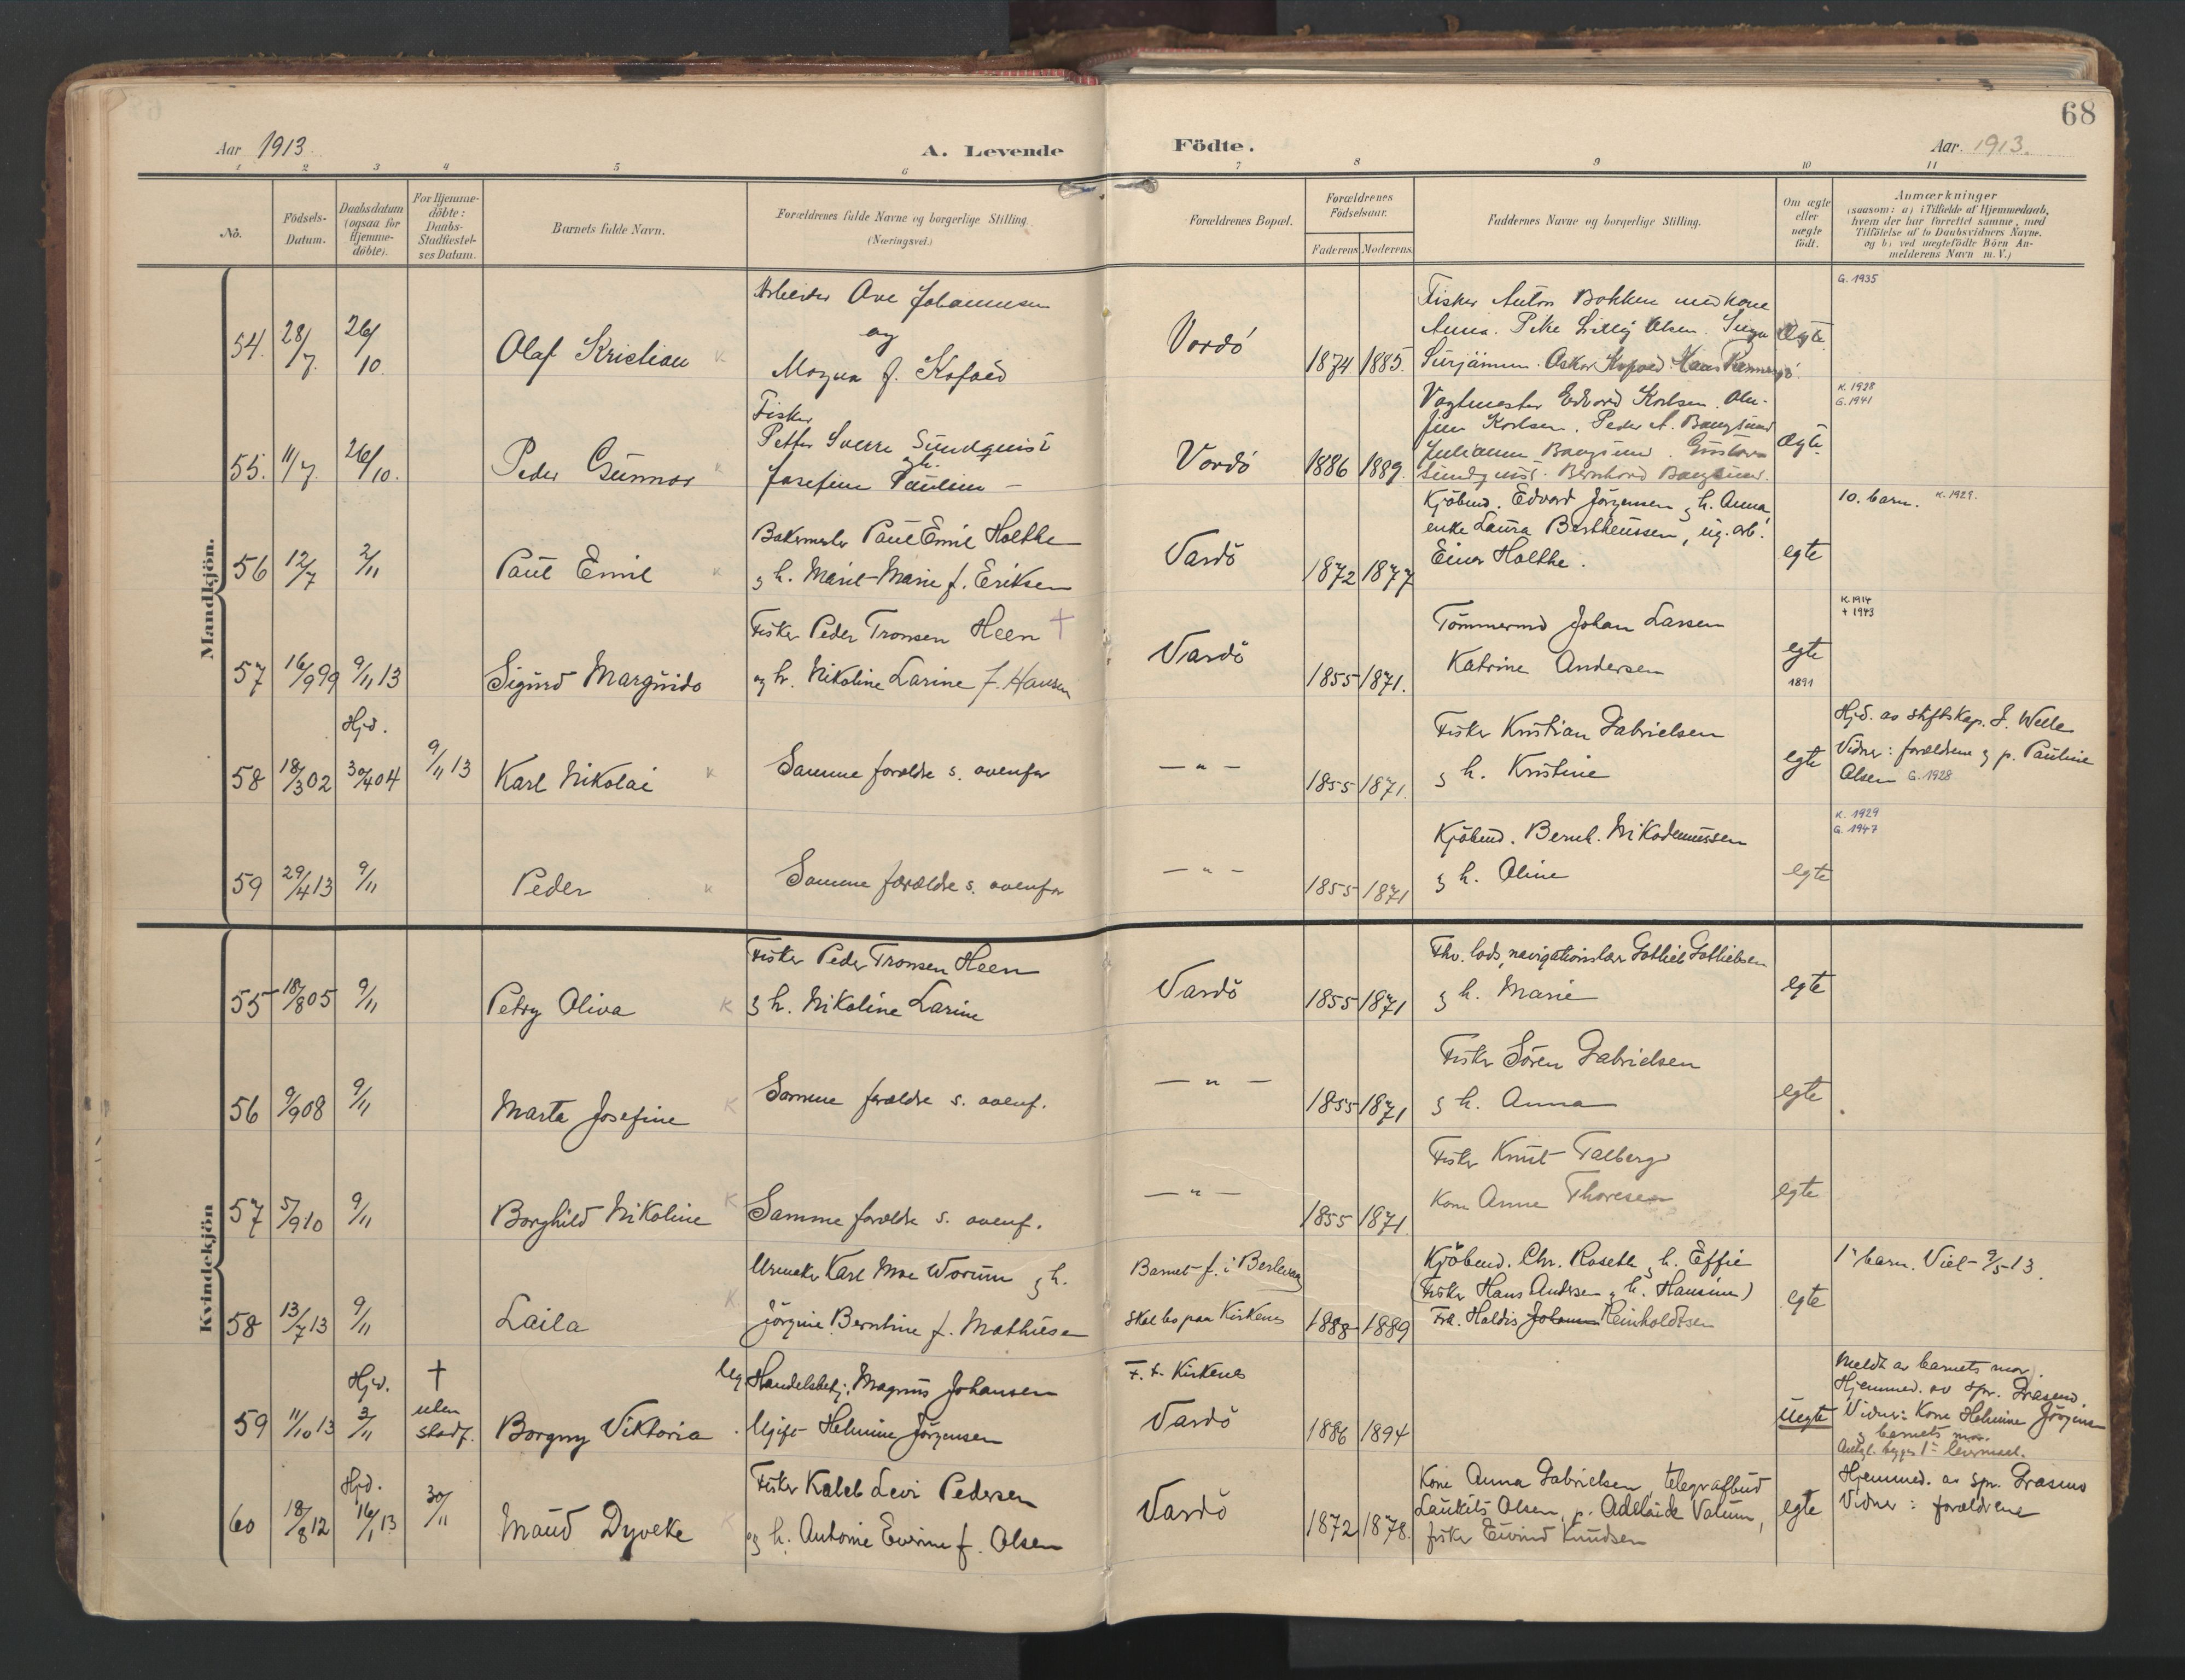 68
Aar 1913.
A. Levende Födte.
Aar. 1913.
1 2 3 4 5 6 7 8 9 10 11
No.
Födsels-Datum.
Daabsdatum (ogsaa for Hjemme-döbte).
For Hjemme-döbte: Daabs-Stadfæstel-ses Datum.
Barnets fulde Navn.
Forældrenes fulde Navne og borgerlige Stilling
(Næringsvei.)
Forældrenes Bopæl.
Forældrenes Födselsaar.
Faderens Moderens.
Faddernes Navne og borgerlige Stilling.
Om ægte eller uægte födt.
Anmærkninger
(saasom: a) i Tilfælde af Hjemmedaab,
hvem der har forrettet samme, med
Tilföielse af to Daabsvidners Navne.
og b) ved uægtefödte Börn An-
melderens Navn m. V.)
Mandkjön.
54. 28/7. 26/10. Olaf Kristian
Arbeider Ove Johannesen
og
Magna f. Kofoed
Vardö 1874 1885.
Fisker Anton Bakken med kone
Anna. Pike Lilly Olsen.
Oskar Kofoed. Hans
Ægte.
G. 1935
55. 11/7. 26/10. Peder Gunnar
Fisker
Petter Sverre Sundquist
og h.
Josefine Pauline —
Vardö 1886 1889.
Vagtmester Edvard Karlsen.
Karlsen. Peder A. Bangsund
Julianna Bangsund. Gustava
Sundquist. Bernhard Bangsund.
Ægte
K. 1928
G. 1941
56 12/7 2/11 Paul Emil
Bakermester Paul Emil Holthe
g h. Marit-Marie f. Eriksen
Vardö 1872 1877
Kjöbmd. Edvard Jörgensen g h. Anna,
enke Laura Bertheussen, ug. arb.
Einar Holthe.
egte
10. barn. K. 1929.
57 16/9 99 9/11 13 Sigurd Margnido
Fisker Peder Tronsen Heen +
og h. Nikoline Larine f. Hansen
Vardö 1855 1871.
Tömmermd Johan Larsen
Katrine Andersen
egte
1891
K. 1914
+ 1943
58 18/3 02 Hjd. 30/4 04 9/11 13 Karl Nikolai
Samme forældre s. ovenfor
— " — 1855 1871.
Fisker Kristian Gabrielsen
g h. Kristine
egte
Hjd. av stiftskap. S. Welle
Vidner: forældrene g p. Pauline
Olsen G. 1928
59 29/4 13 9/11 Peder
Samme forældre s. ovenfor
— " — 1855 1871
Kjöbmd. Bernh. Nikodemussen
g h. Oline
egte
K. 1929
G. 1947
Kvindekjön
55 18/8 05 9/11 Petry Oliva K
Fisker Peder Tronsen Heen
g h. Nikoline Larine
Vardö 1855 1871
Fhv. lods, navigationslær Gotlieb Gotliebsen
g h. Marie
egte
56 9/9 08 9/11 Marta Josefine K
Samme forældre s. ovenf.
— " — 1855 1871
Fisker Sören Gabrielsen
g h. Anna
egte
57 5/9 10 9/11 Borghild Nikoline K
Samme forældre s. ovenf.
— " — 1855 1871.
Fisker Knut Talberg
Kone Anne Thoresen
egte
58 13/7 13 9/11 Laila K
Urmaker Karl Moe Worum g h.
Jörgine Berntine f. Mathisen
Barnet f. i Berlevaag
skal bo paa Kirkenes 1888 1889
Kjöbmd. Chr. Roseth g h. Effie
(Fisker Hans Andersen g h. Hansine)
Frk. Haldis Johanne Reinholdtsen
egte
1ste barn. Viet 9/5 13.
59 11/10 13 Hjd. 3/11 † uten stadf. Borgny Viktoria
Ug. Handelsbetj. Magnus Johansen
Ugift Helmine Jörgensen
F. t. Kirkenes
Vardö 1886 1894
Uegte
Meldt av barnets mor.
Hjemmed. av spr. Grasmo.
Vidner: Kone Helmine Jörgensen
g barnets mor.
Antgl. begges 1ste leiermaal.
60 18/8 12 Hjd. 16/1 13 30/11 Maud Dyveke K
Fisker Kaleb Levi Pedersen
og h. Antonie Evine f. Olsen
Vardö 1872 1878.
Kone Anna Gabrielsen, telegrafbud
Laurits Olsen, p. Adelaide Valum,
fisker Eivind Knudsen
egte
Hjemmed. av spr. Grasmo
Vidner: forældrene